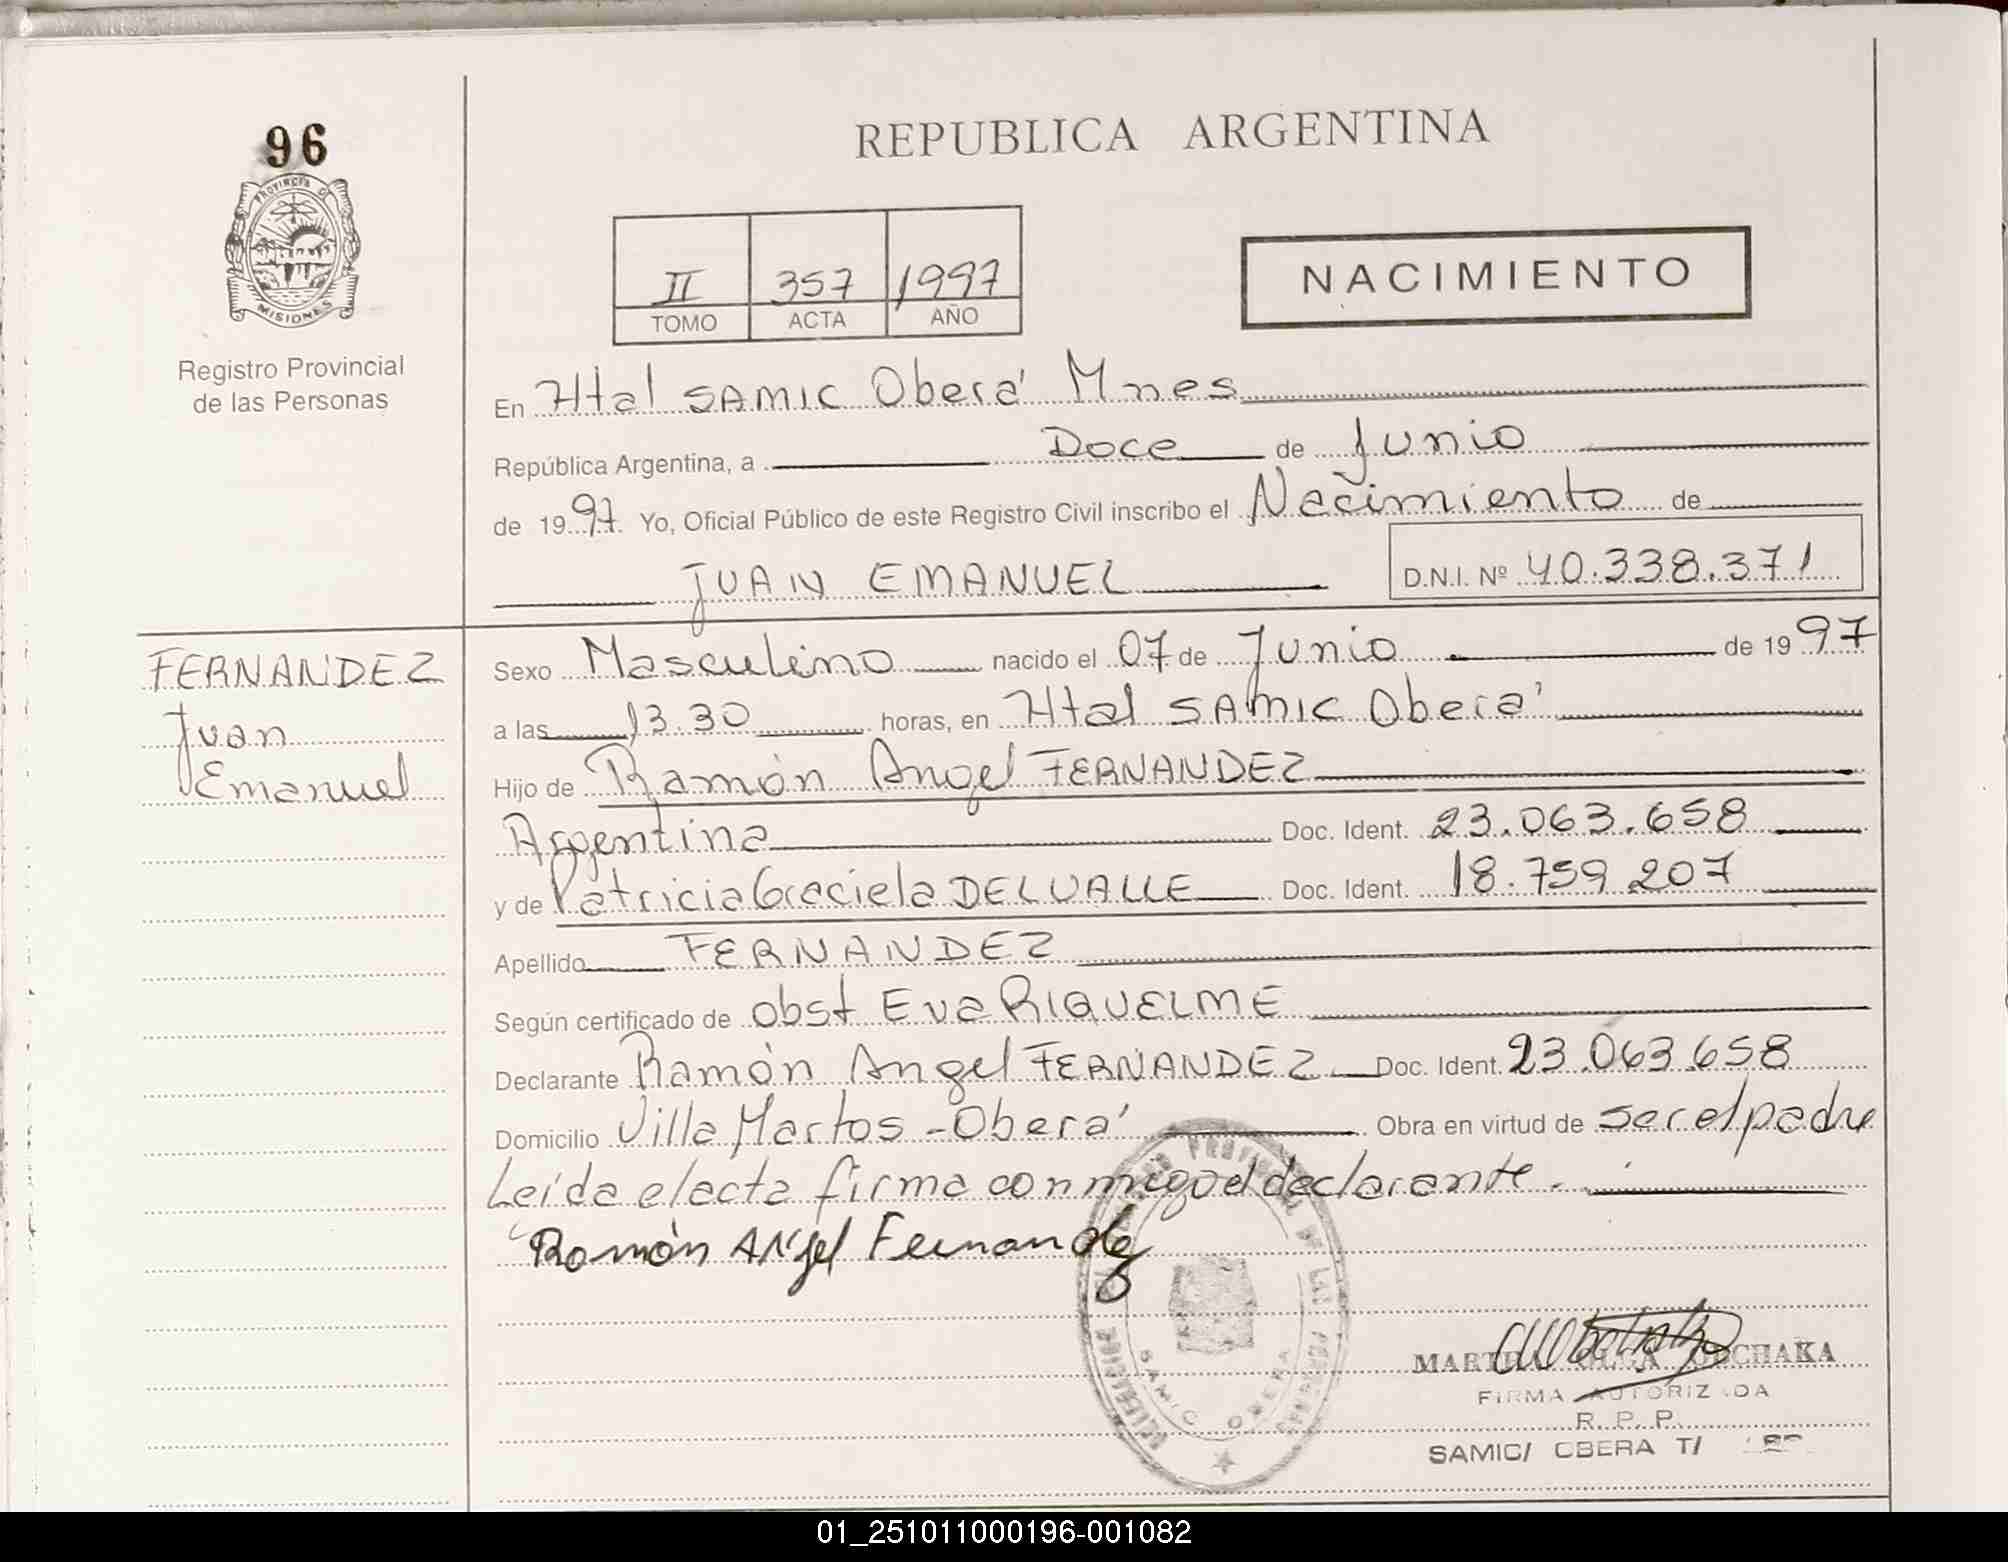 96
PROVINCIA DE
MISIONES
Registro Provincial
de las Personas
REPUBLICA ARGENTINA
II 357 1997
TOMO ACTA AÑO
NACIMIENTO
En Htal SAMIC Oberá Mnes
República Argentina, a Doce de Junio
de 1997 Yo, Oficial Público de este Registro Civil inscribo el Nacimiento de
JUAN EMANUEL D.N.I. Nº 40.338.371
FERNANDEZ
Juan
Emanuel
Sexo Masculino nacido el 07 de Junio de 1997
a las 13.30 horas, en Htal SAMIC Oberá
Hijo de Ramón Angel FERNANDEZ
Argentina Doc. Ident. 23.063.658
y de Patricia Graciela DELVALLE Doc. Ident. 18.759.207
Apellido FERNANDEZ
Según certificado de obst Eva RIQUELME
Declarante Ramón Angel FERNANDEZ Doc. Ident. 23.063.658
Domicilio Villa Martos - Oberá Obra en virtud de ser el padre
Leída el acta firma conmigo el declarante.
Ramón Angel Fernandez
SAMIC OBERA
MARTHA OLGA CHAKA
FIRMA AUTORIZADA
R. P. P.
SAMIC/ OBERA T/
01_251011000196-001082